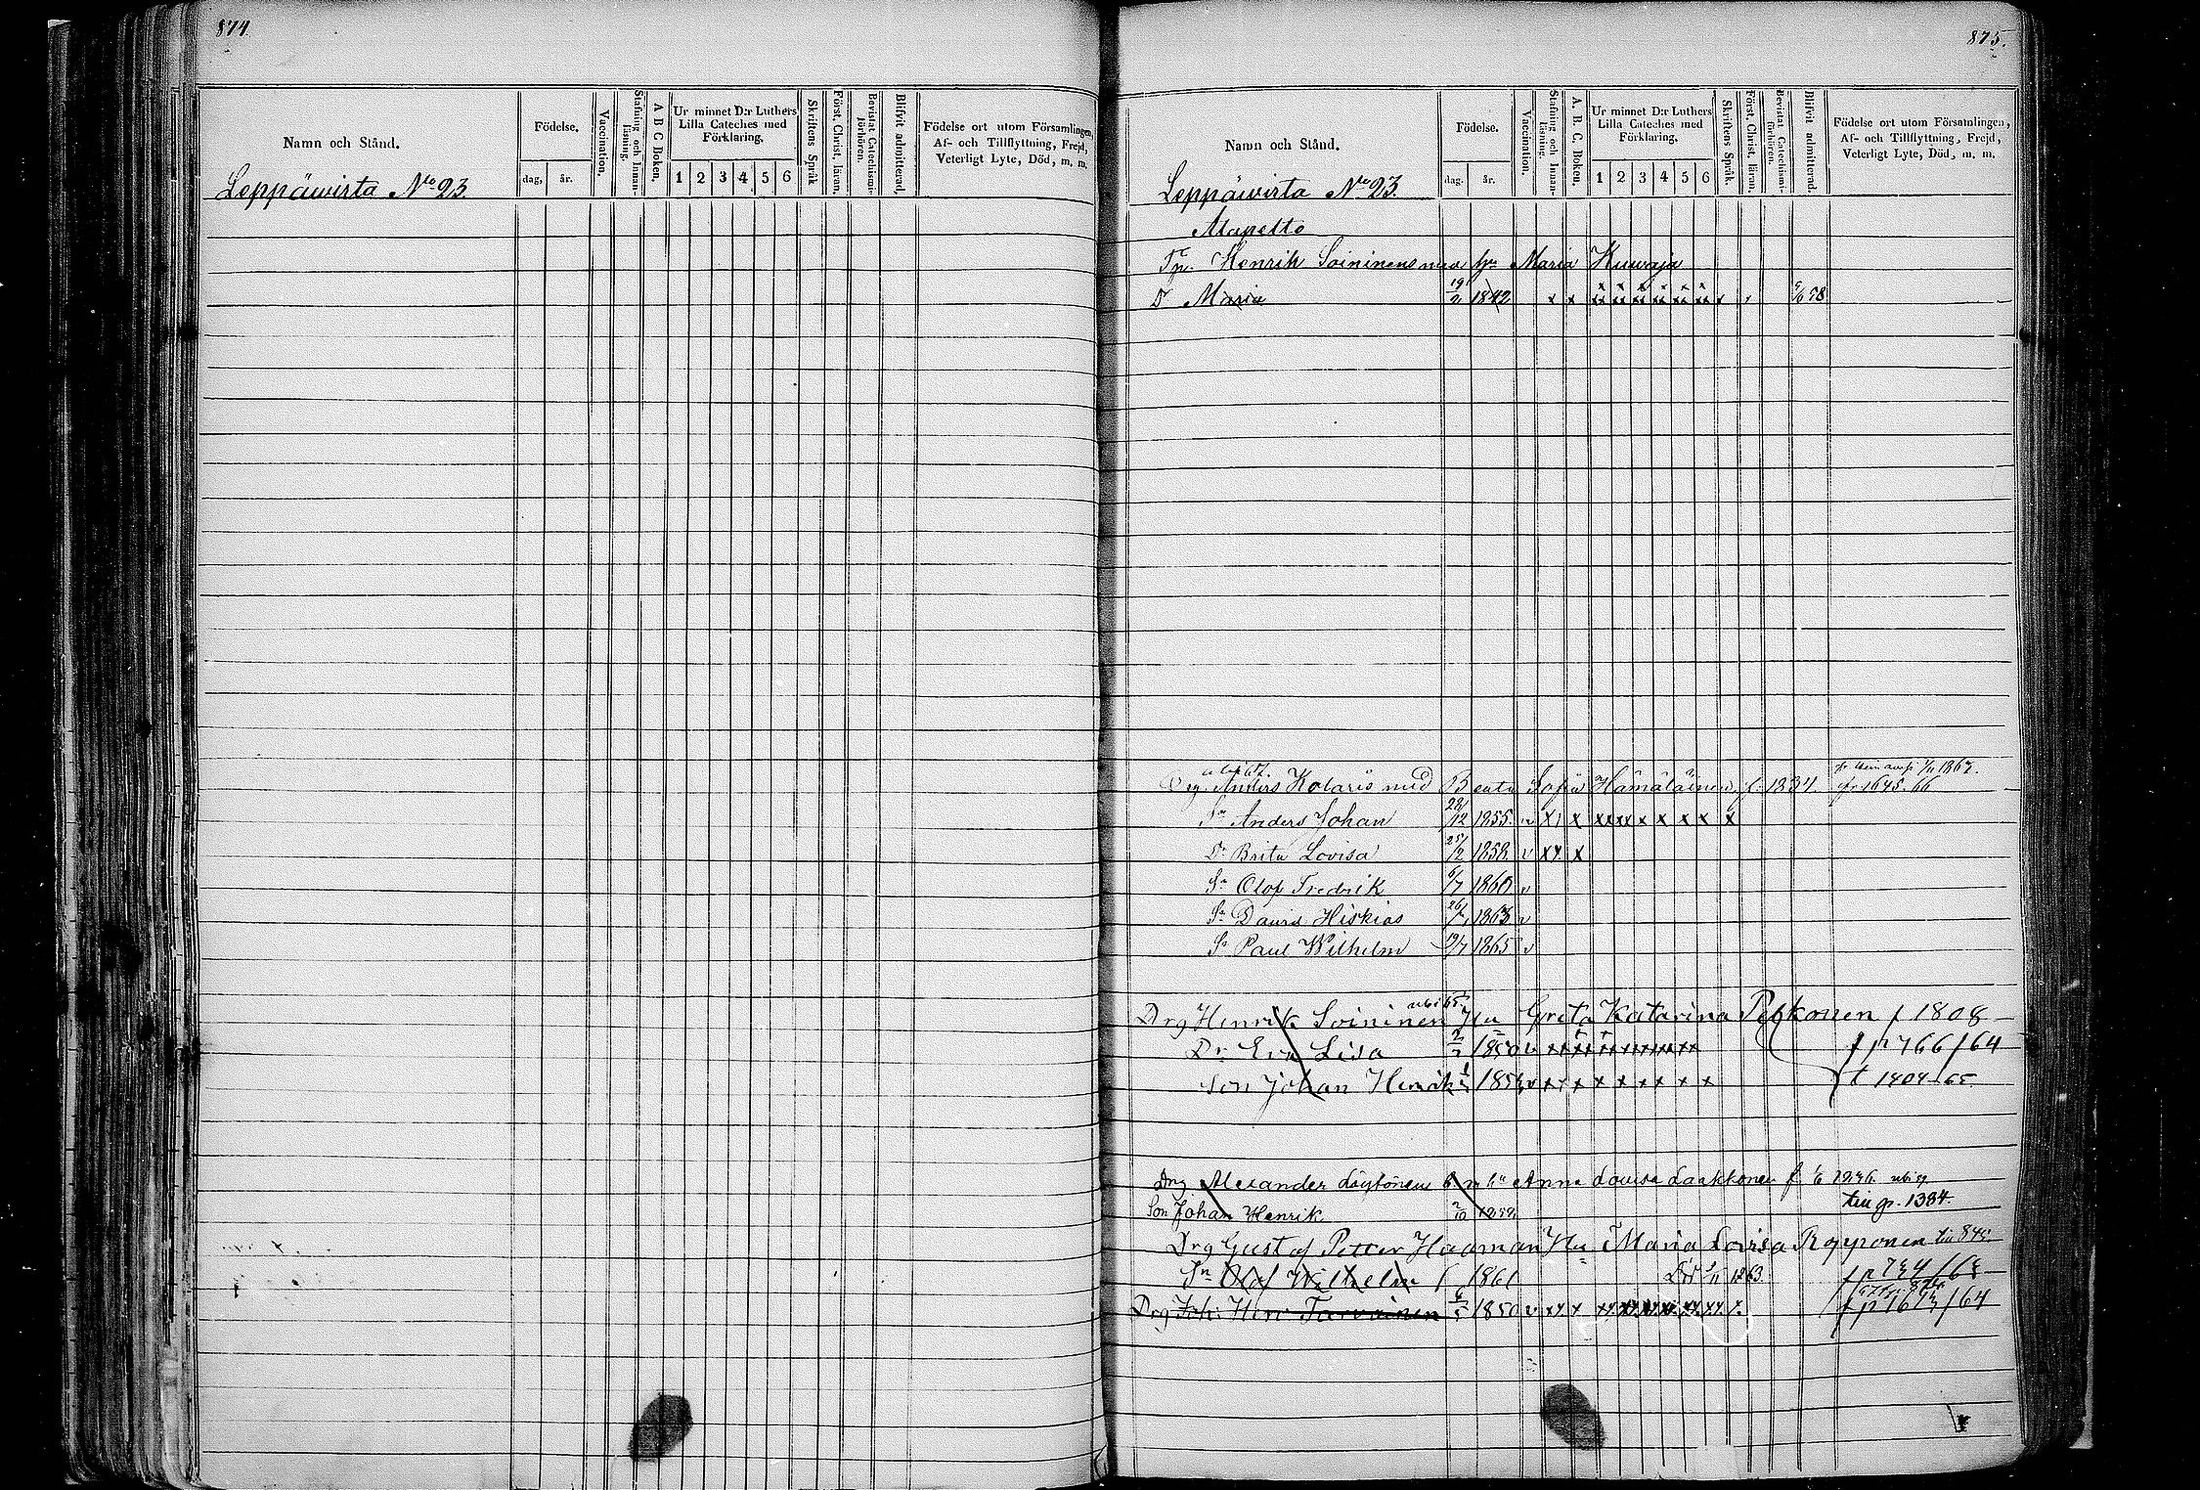 874.
Namn och Stånd.
Födelse.
dag,
år.
Vaccination.
Stafning och Innan-
läsning.
A B C Boken.
Ur minnet D:r Luthers
Lilla Cateches med
Förklaring,
1 2 3 4 5 6
Skriftens Språk
Först. Christ, läran,
Bevistat Catechismi-
förhören.
Blifvit admitterad,
Födelse ort utom Församlingen,
Af- och Tillflyttning, Frejd,
Veterligt Lyte, Död, m. m.
Leppäwirta No 23.
875.
Namn och Stånd.
Födelse.
dag.
år.
Vaccination.
Stafning och Innan-
läsning.
A. B. C. Boken.
Ur minnet D:r Luthers
Lilla Cateches med
Förklaring.
1 2 3 4 5 6
Skriftens Språk.
Först, Christ, läran,
Bevistat Catechismi-
förhören.
Blifvit admitterad.
Födelse ort utom Församlingen,
Af- och Tillflyttning, Frejd,
Veterligt Lyte, Död, m. m.
Leppäwirta No 23.
Henrik Soininens Maria
Dr Maria 19/2 1842 x x 58
Anders Kolaris med Beata Sofia Hämäläinen f. 1834 1645. 66
Sn Anders Johan 28/12 1855 v x x x
Dr Brita Lovisa 25/2 1858 v x x x
Sn Olof Fredrik 6/7 1860 v
Sn David Hiskias 1863 v
Sn Paul Wilhelm 19/7 1865 v
Drg Henrik Soininen Hu Greta Katarina Pekkonen f 1808
Dr Eva Lisa 1850 f p 766/64
Son Johan Henrik t 1404 65
Drg Alexander Anna Lovisa Laakkonen f
Son Johan Henrik tin p. 1384.
Drg Gustaf Petter Hu Maria Lovisa
Sn Olof Wilhelm f 1861 Död 1863
Drg Joh: Henr Tarvainen 1850 v